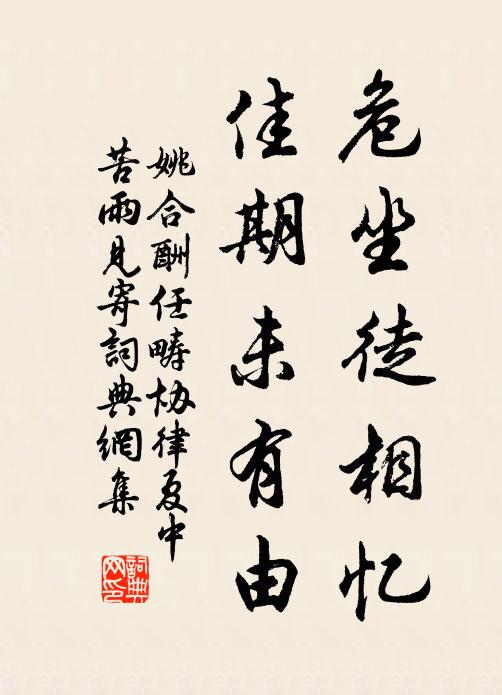 危坐徒相忆
佳期未有由
姚合酬任畴协律夏中
苦雨见寄词典网集
词典网印